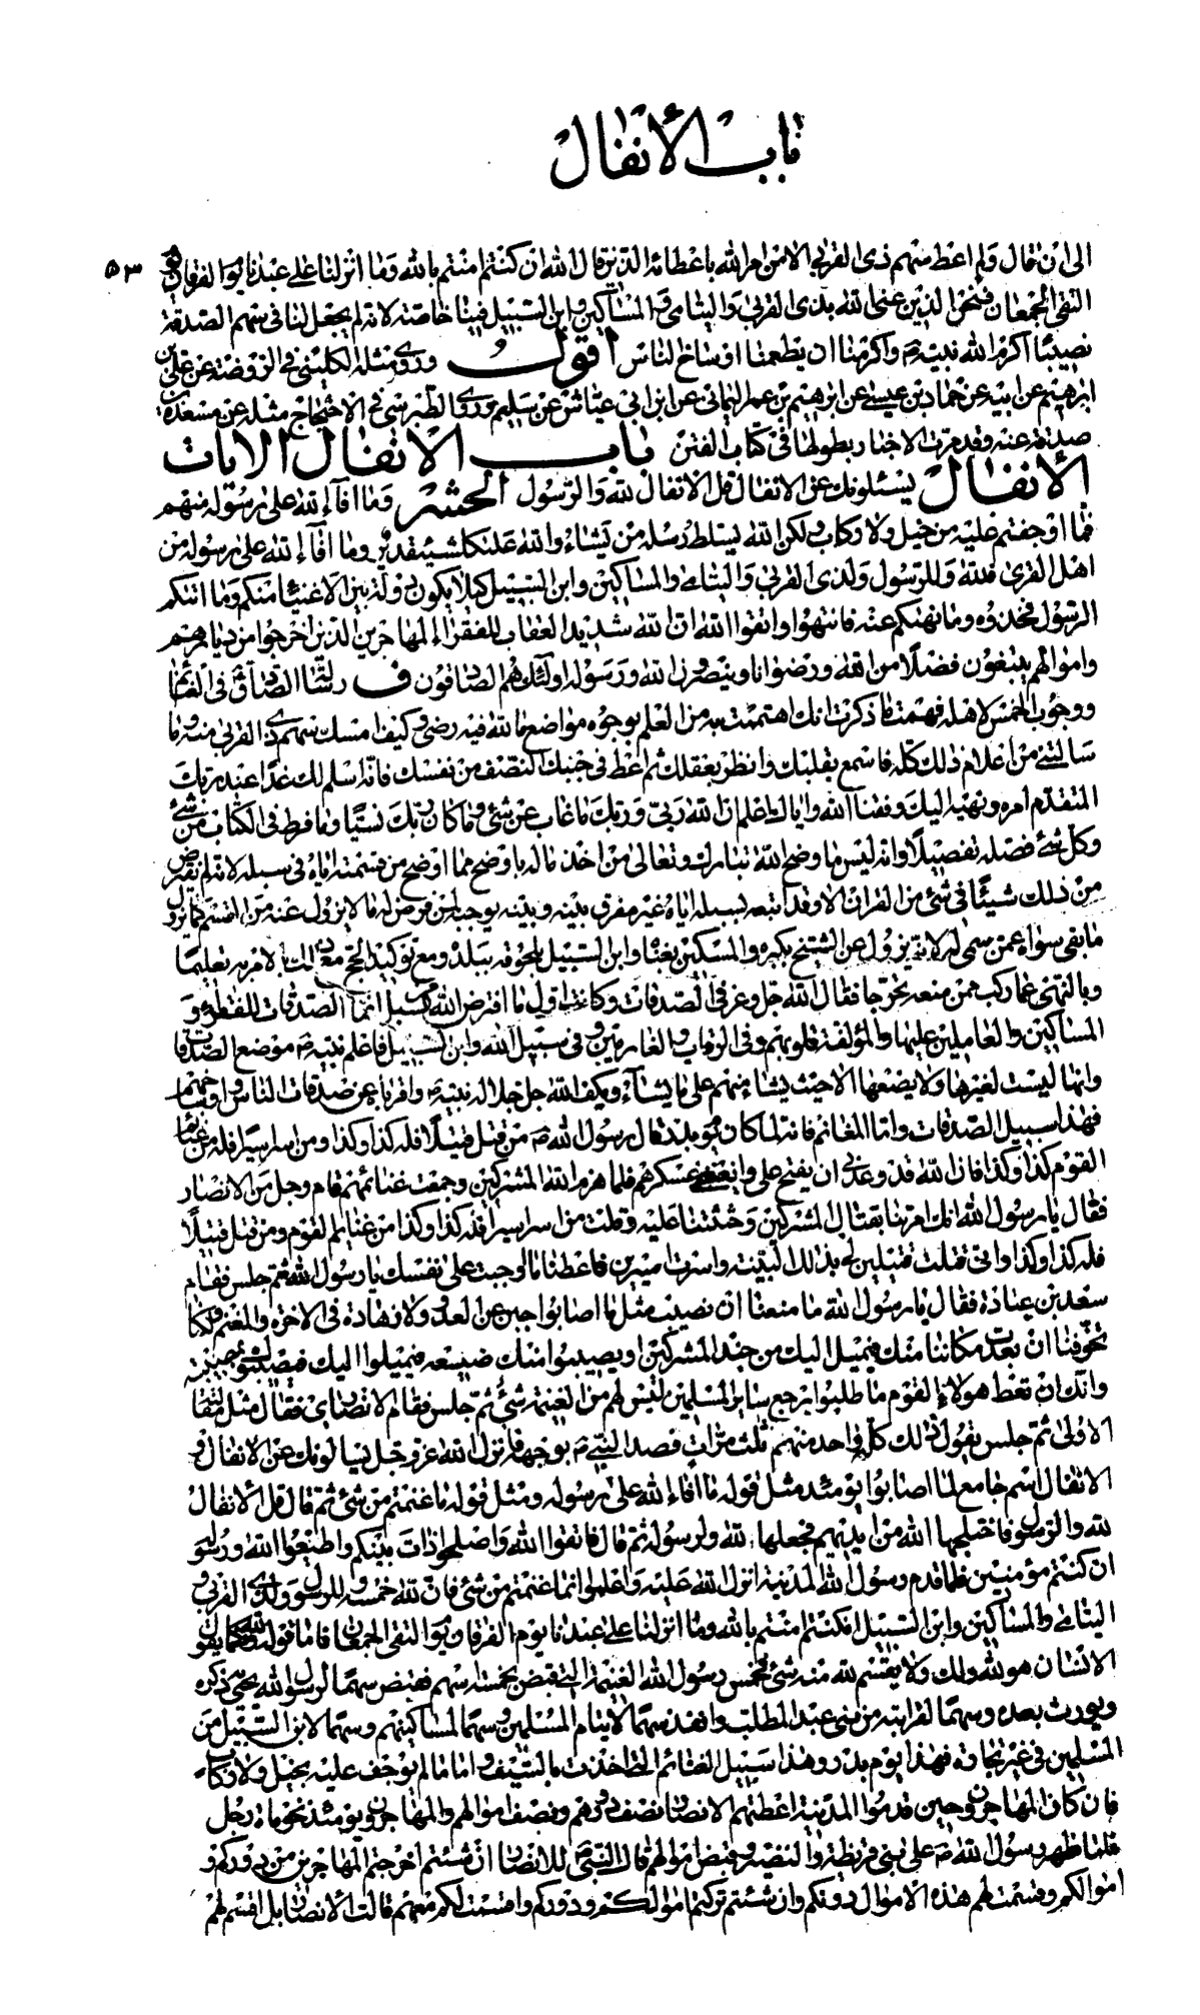 باب الأنفال
٥٣
الى ان قال ولم اعط منهم ذى القربى الا من امر الله باعطائه الذين قال الله ان كنتم امنتم بالله وما انزلنا على عبدنا يوم الفرقان يوم
التقى الجمعان فنحن الذين عنى الله بذى القربى واليتامى والمساكين وابن السبيل فينا خاصة لانه لم يجعل لنا فى سهم الصدقة
نصيبًا اكرم الله نبيه ص واكرمنا ان يطعمنا اوساخ الناس اقول وروى مثله الكلينى فى الروضة عن على بن
ابرهيم عن ابيه عن حماد بن عيسى عن ابرهيم بن عمر اليمانى عن ابن ابى عياش عن سليم وروى الطبرسى فى الاحتجاج مثله عن مسعدة بن
صدقة عنه وقد مرت الاخبار بطولها فى كتاب الفتن باب الانفال الايات
الانفال يسئلونك عن الانفال قل الانفال لله والرسول الحشر وما افآء الله على رسوله منهم
فما اوجفتم عليه من خيل ولا ركاب ولكن الله يسلط رسله من يشاء والله على كل شئ قدير وما افآء الله على رسوله من
اهل القرى فلله وللرسول ولذى القربى واليتامى والمساكين وابن السبيل كيلا يكون دولة بين الاغنياء منكم وما اتيكم
الرسول فخذوه وما نهيكم عنه فانتهوا واتقوا الله ان الله شديد العقاب للفقراء المهاجرين الذين اخرجوا من ديارهم
واموالهم يبتغون فضلًا من الله ورضوانا وينصرون الله ورسوله اولئك هم الصادقون ف رسالة الصادق فى الغنائم
ووجوب الخمس لاهله فهمت ما ذكرت انك اهتممت به من العلم بوجوه مواضع ما لله فيه رضى وكيف امسك سهم ذى القربى منه وما
سالتنى من اعلام ذلك كله فاسمع بقلبك وانظر بعقلك ثم اعط فى جنبك النصف من نفسك فانه اسلم لك غدًا عند ربك
المتقدم امره ونهيه اليك وفقنا الله واياك اعلم ان الله ربى وربك ما غاب عن شئ وما كان ربك نسيًا وما فرط فى الكتاب من شئ
وكل شئ فصله تفصيلًا وانه ليس ما وضح الله تبارك وتعالى من اخذ ماله باوضح مما اوضح من قسمته اياه فى سبله لانه لم يفترض
من ذلك شيئًا فى شئ من القران الا وقد اتبعه بسبله اياه غير مفرق بينه وبينه يوجبه لمن فرض له ما لا يزول عنه من القسم كما يزول
ما بقى سواه عمن سمى له لانه يزول عن الشيخ بكبره والمسكين بغناه وابن السبيل بلحوقه ببلده ومع توكيد الحج مع ذلك بالامر به تعليمًا
وبالنهى عما ركب ممن منعه تحرجا فقال الله جل وعز فى الصدقات وكانت اول ما افترض الله سبله انما الصدقات للفقراء و
المساكين والعاملين عليها والمؤلفة قلوبهم وفى الرقاب والغارمين وفى سبيل الله وابن السبيل فاعلم نبيه ص موضع الصدقات
وانها ليست لغيرها ولا يضعها الا حيث يشاء منهم على ما يشآء ويكف الله جل جلاله نبيه ص واقرباءه عن صدقات الناس واوساخهم
فهذا سبيل الصدقات واما المغانم فانه لما كان يوم بدر قال رسول الله ص من قتل قتيلًا فله كذا وكذا ومن اسر اسيرا فله من غنائم
القوم كذا وكذا فان الله قد وعدنى ان يفتح على وانعمنى عسكرهم فلما هزم الله المشركين وجمعت غنائمهم قام رجل من الانصار
فقال يا رسول الله انك امرتنا بقتال المشركين وحثثتنا عليه وقلت من اسر اسيرا فله كذا وكذا من غنائم القوم ومن قتل قتيلًا
فله كذا وكذا وانى قتلت قتيلين لى بذلك البينة واسرت اسيرين فاعطنا ما اوجبت على نفسك يا رسول الله ثم جلس فقام
سعد بن عبادة فقال يا رسول الله ما منعنا ان نصيب مثل ما اصابوا جبن عن العدو ولا زهادة فى الاخرة والمغنم ولكنا
تخوفنا ان بعد مكاننا منك فيميل اليك من جند المشركين او يصيبوا منك ضيعة فيميلوا اليك فيصيبوك بمصيبة
وانك ان تعط هولاء القوم ما طلبوا يرجع ساير المسلمين ليس لهم من الغنيمة شئ ثم جلس فقام الانصارى فقال مثل مقالته
الاولى ثم جلس يقول ذلك كل واحد منهم ثلث مرات فصد النبى ص بوجهه فانزل الله عز وجل يسالونك عن الانفال و
الانفال اسم جامع لما اصابوا يومئذ مثل قوله ما افاء الله على رسوله ومثل قوله ما غنمتم من شئ ثم قال قل الانفال
لله والرسول فاختلجها الله من ايديهم فجعلها لله ولرسوله ثم قال فاتقوا الله واصلحوا ذات بينكم واطيعوا الله ورسوله
ان كنتم مؤمنين فلما قدم رسول الله المدينة انزل الله عليه واعلموا انما غنمتم من شئ فان لله خمسه وللرسول ولذى القربى و
اليتامى والمساكين وابن السبيل ان كنتم امنتم بالله وما انزلنا على عبدنا يوم الفرقان يوم التقى الجمعان فاما قوله لله فكما يقول
الانسان هو لله ولك ولا يقسم لله منه شئ فخمس رسول الله الغنيمة التى قبض بخمسة اسهم فقبض سهمًا لرسول الله يحيى ذكره
ويورث بعده وسهمًا لقرابته من بنى عبد المطلب وانفذ سهمًا لايتام المسلمين وسهمًا لمساكينهم وسهمًا لابن السبيل من
المسلمين فى غير تجارة فهذا يوم بدر وهذا سبيل الغنائم التى اخذت بالسيف واما ما لم يوجف عليه بخيل ولا ركاب
فان كان المهاجرون حين قدموا المدينة اعطتهم الانصار نصف دورهم ونصف اموالهم والمهاجرون يومئذ نحو مائة رجل
فلما ظهر رسول الله ص على بنى قريظة والنضير وقبض اموالهم قال النبى ص للانصار ان شئتم اخرجتم المهاجرين من دوركم و
اموالكم وقسمت لهم هذه الاموال دونكم وان شئتم تركتم اموالكم ودوركم واقسمت لكم معهم قالت الانصار بل اقسم لهم